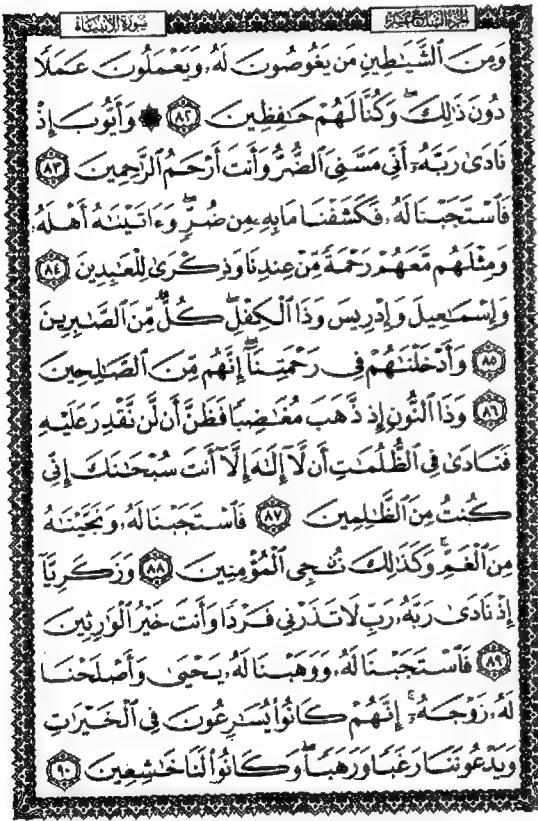 الجزء السابع عشر
سورة الأنبياء
وَمِنَ ٱلشَّيَٰطِينِ مَن يَغُوصُونَ لَهُۥ وَيَعْمَلُونَ عَمَلًا
دُونَ ذَٰلِكَ ۖ وَكُنَّا لَهُمْ حَٰفِظِينَ ٨٢ ۞ وَأَيُّوبَ إِذْ
نَادَىٰ رَبَّهُۥٓ أَنِّى مَسَّنِىَ ٱلضُّرُّ وَأَنتَ أَرْحَمُ ٱلرَّٰحِمِينَ ٨٣
فَٱسْتَجَبْنَا لَهُۥ فَكَشَفْنَا مَا بِهِۦ مِن ضُرٍّ ۖ وَءَاتَيْنَٰهُ أَهْلَهُۥ
وَمِثْلَهُم مَّعَهُمْ رَحْمَةً مِّنْ عِندِنَا وَذِكْرَىٰ لِلْعَٰبِدِينَ ٨٤
وَإِسْمَٰعِيلَ وَإِدْرِيسَ وَذَا ٱلْكِفْلِ ۖ كُلٌّ مِّنَ ٱلصَّٰبِرِينَ
٨٥ وَأَدْخَلْنَٰهُمْ فِى رَحْمَتِنَآ ۖ إِنَّهُم مِّنَ ٱلصَّٰلِحِينَ
٨٦ وَذَا ٱلنُّونِ إِذ ذَّهَبَ مُغَٰضِبًا فَظَنَّ أَن لَّن نَّقْدِرَ عَلَيْهِ
فَنَادَىٰ فِى ٱلظُّلُمَٰتِ أَن لَّآ إِلَٰهَ إِلَّآ أَنتَ سُبْحَٰنَكَ إِنِّى
كُنتُ مِنَ ٱلظَّٰلِمِينَ ٨٧ فَٱسْتَجَبْنَا لَهُۥ وَنَجَّيْنَٰهُ
مِنَ ٱلْغَمِّ ۚ وَكَذَٰلِكَ نُـۨجِى ٱلْمُؤْمِنِينَ ٨٨ وَزَكَرِيَّآ
إِذْ نَادَىٰ رَبَّهُۥ رَبِّ لَا تَذَرْنِى فَرْدًا وَأَنتَ خَيْرُ ٱلْوَٰرِثِينَ
٨٩ فَٱسْتَجَبْنَا لَهُۥ وَوَهَبْنَا لَهُۥ يَحْيَىٰ وَأَصْلَحْنَا
لَهُۥ زَوْجَهُۥٓ ۚ إِنَّهُمْ كَانُوا۟ يُسَٰرِعُونَ فِى ٱلْخَيْرَٰتِ
وَيَدْعُونَنَا رَغَبًا وَرَهَبًا ۖ وَكَانُوا۟ لَنَا خَٰشِعِينَ ٩٠